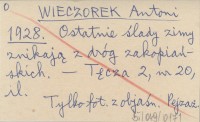 0
WIECZOREK Antoni
1928. Ostatnie ślady zimy
znikają z dróg zakopiań-
skich. — Tęcza 2, nr 20,
il.
Tylko fot. z objaśn. Pejzaż.